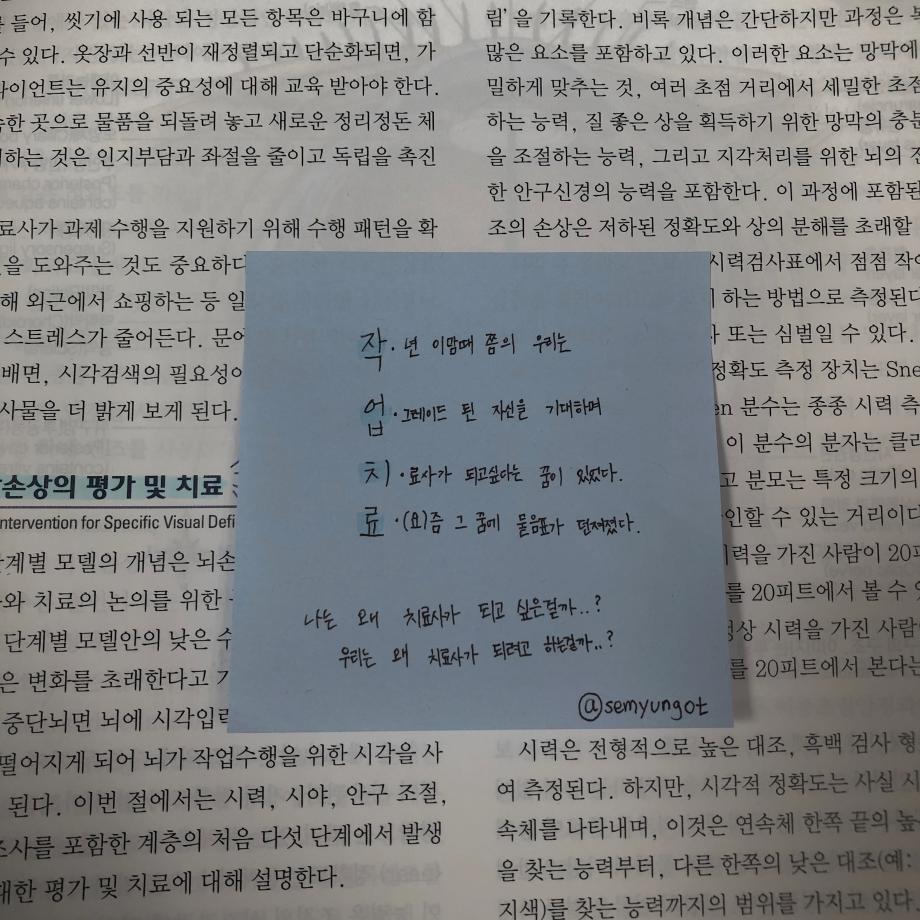 를 들어, 씻기에 사용 되는 모든 항목은 바구니에 함
수 있다. 옷장과 선반이 재정렬되고 단순화되면, 가
라이언트는 유지의 중요성에 대해 교육 받아야 한다.
속한 곳으로 물품을 되돌려 놓고 새로운 정리정돈 체
하는 것은 인지부담과 좌절을 줄이고 독립을 촉진
료사가 과제 수행을 지원하기 위해 수행 패턴을 확
을 도와주는 것도 중요하다
해 외근에서 쇼핑하는 등 일
스트레스가 줄어든다. 문어
배면, 시각검색의 필요성이
사물을 더 밝게 보게 된다.
손상의 평가 및 치료
ntervention for Specific Visual Defi
단계별 모델의 개념은 뇌손
와 치료의 논의를 위한
단계별 모델안의 낮은 수
은 변화를 초래한다고 가
중단뇌면 뇌에 시각입력
떨어지게 되어 뇌가 작업수행을 위한 시각을 사
된다. 이번 절에서는 시력, 시야, 안구 조절,
조사를 포함한 계층의 처음 다섯 단계에서 발생
대한 평가 및 치료에 대해 설명한다.
림’을 기록한다. 비록 개념은 간단하지만 과정은
많은 요소를 포함하고 있다. 이러한 요소는 망막에
밀하게 맞추는 것, 여러 초점 거리에서 세밀한 초점
하는 능력, 질 좋은 상을 획득하기 위한 망막의 충분
을 조절하는 능력, 그리고 지각처리를 위한 뇌의
한 안구신경의 능력을 포함한다. 이 과정에 포함된
조의 손상은 저하된 정확도와 상의 분해를 초래할
시력검사표에서 점점 작아
하는 방법으로 측정된다
또는 심벌일 수 있다.
정확도 측정 장치는 Sne
en 분수는 종종 시력 측
이 분수의 분자는 클라
고 분모는 특정 크기의
인할 수 있는 거리이다
시력을 가진 사람이 20피
를 20피트에서 볼 수 있
정상 시력을 가진 사람
를 20피트에서 본다는
시력은 전형적으로 높은 대조, 흑백 검사 형
여 측정된다. 하지만, 시각적 정확도는 사실 시
속체를 나타내며, 이것은 연속체 한쪽 끝의 높
을 찾는 능력부터, 다른 한쪽의 낮은 대조(예:
지색)를 찾는 능력까지의 범위를 가지고 있다.
작. 년 이맘때 쯤의 우리는
업. 그레이드 된 자신을 기대하며
치. 료사가 되고싶다는 꿈이 있었다.
료. (요)즘 그 꿈에 물음표가 던져졌다.
나는 왜 치료사가 되고 싶은걸까..?
우리는 왜 치료사가 되려고 하는걸까..?
@semyungot